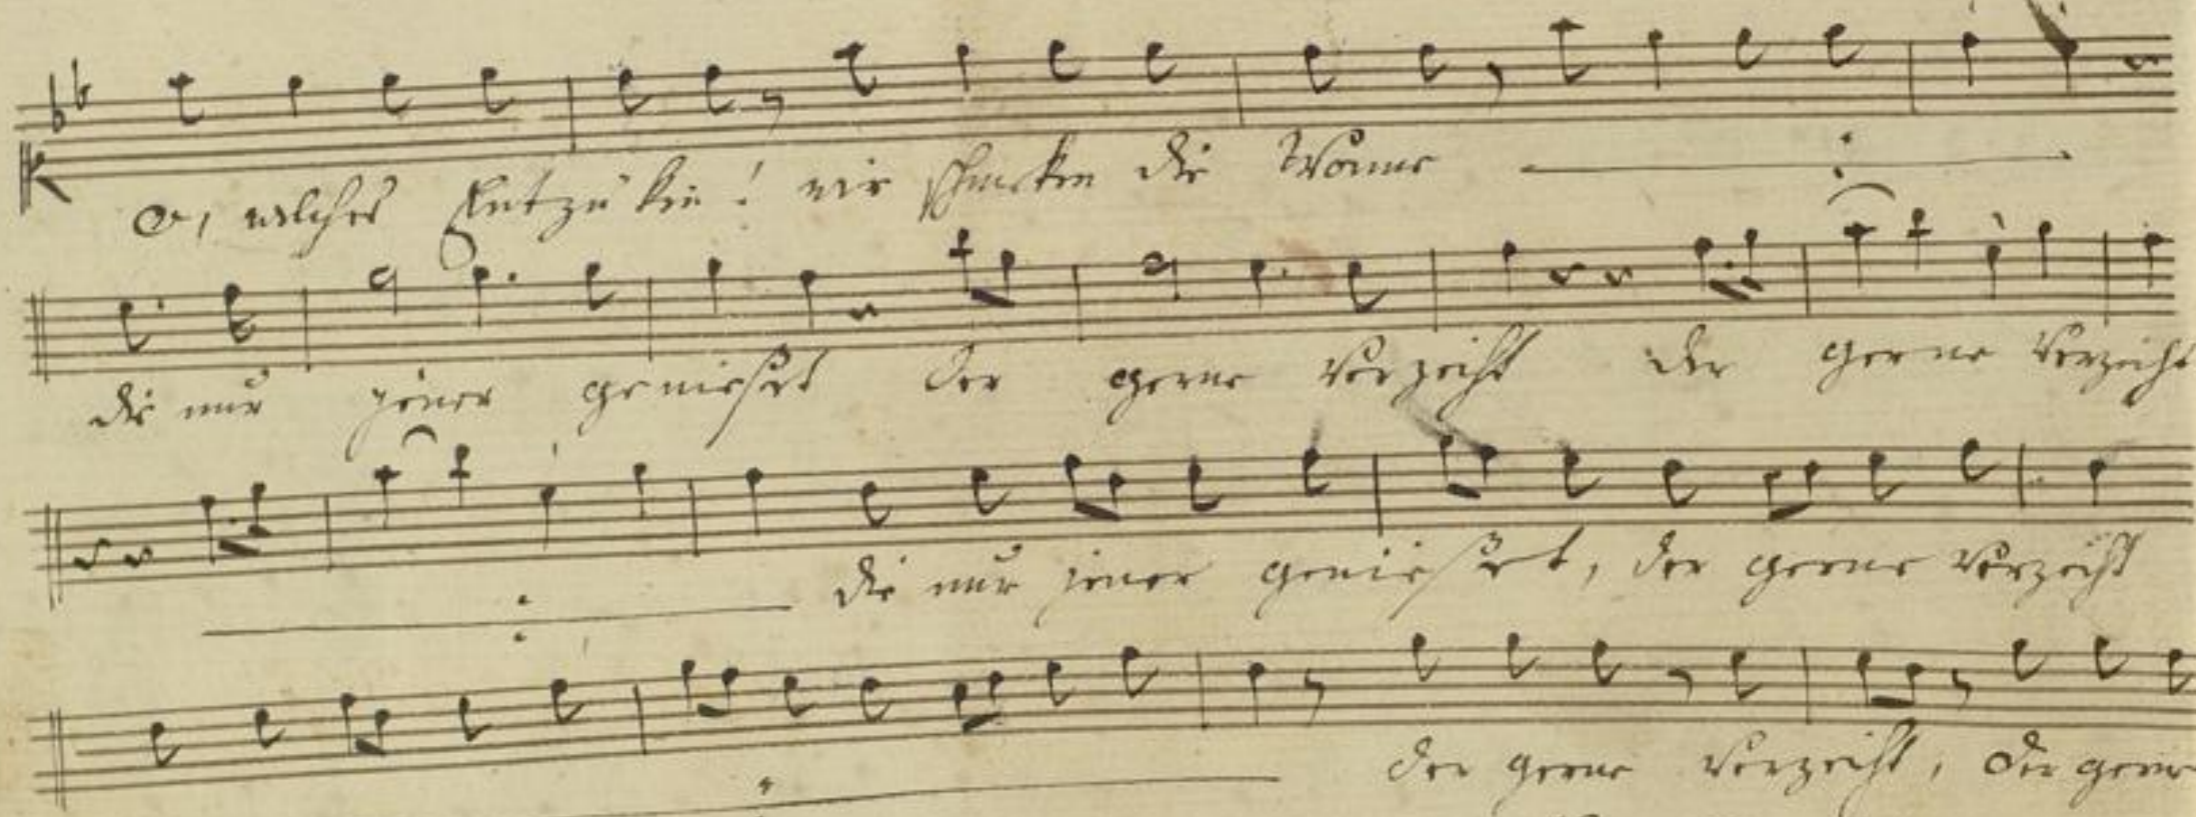 O, welches Entzüken! wir schmecken die Wonne
die nur jener genießet der gerne verzeiht der gerne verzeiht
die nur jener genießet, der gerne verzeiht
der gerne verzeiht, der gerne